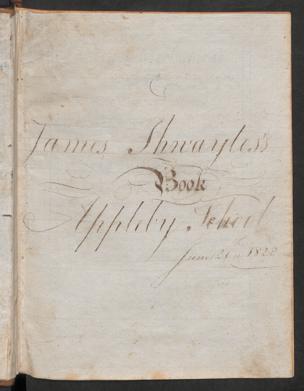 James Thwayles's
Book
Appleby School
June 21st 1822